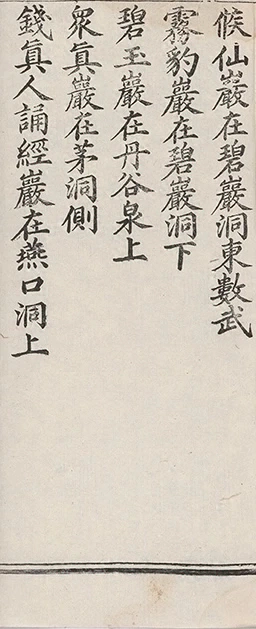 候仙巖在碧巖洞東數武
霧豹巖在碧巖洞下
碧玉巖在丹谷泉上
衆眞巖在茅洞側
錢眞人誦經巖在燕口洞上